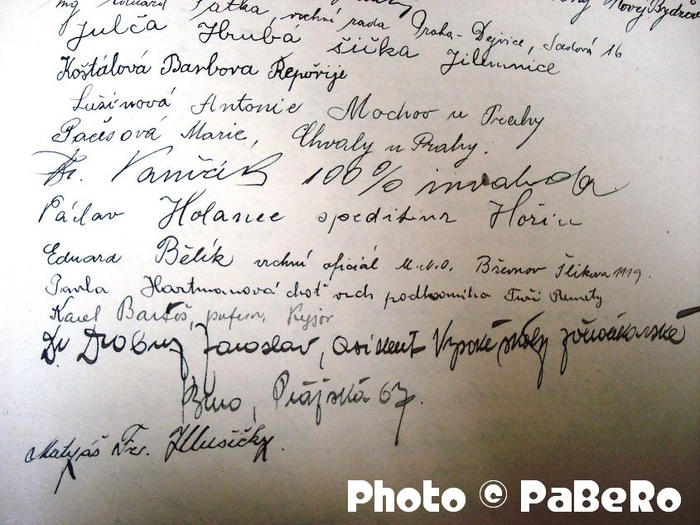 Ing Eduard Pátka, vrchní rada Praha-Dejvice, Sadová 16
Julča Hrubá šička Jilemnice
Košťálová Barbora Řepořije
Lužinová Antonie Mochov u Prahy
Pačesová Marie, Chvaly u Prahy.
Fr. Vaníček 100% invalida
Václav Holanec spediteur Hořín
Eduard Bělík vrchní oficiál M.N.O. Břevnov Šlikova 1119.
Pavla Hartmanová choť vrch podkovníka
Karel Bartoš, profesor, Kyjov
Dr. Drobný Jaroslav, asistent Vysoké školy zvěrolékařské
Brno, 67.
Matyáš Fr.
Photo © PaBeRo